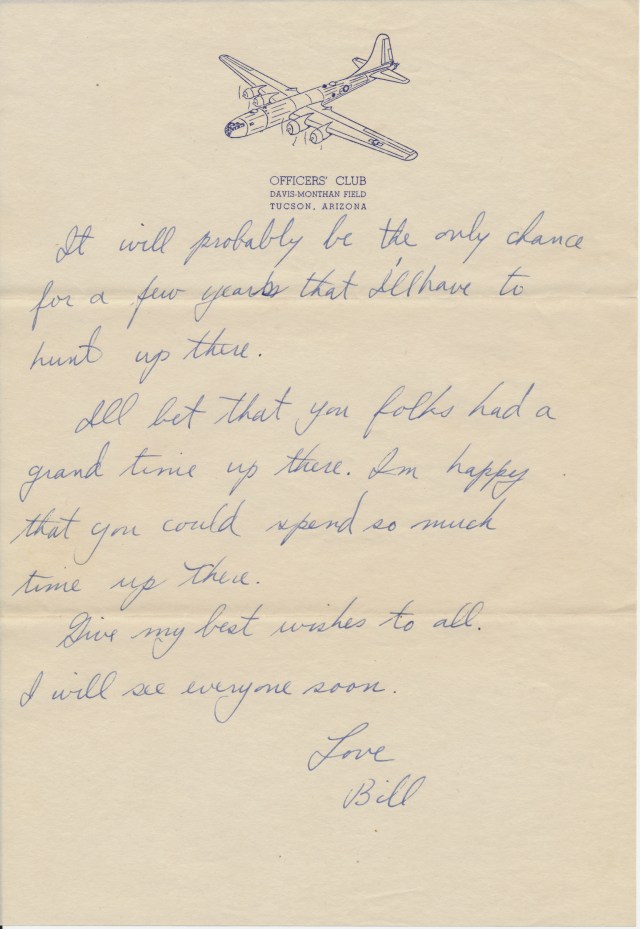 OFFICERS' CLUB
DAVIS-MONTHAN FIELD
TUCSON, ARIZONA
It will probably be the only chance
for a few years that I'll have to
hunt up there.
Ill bet that you folks had a
grand time up there. Im happy
that you could spend so much
time up there.
Give my best wishes to all.
I will see everyone soon.
Love
Bill